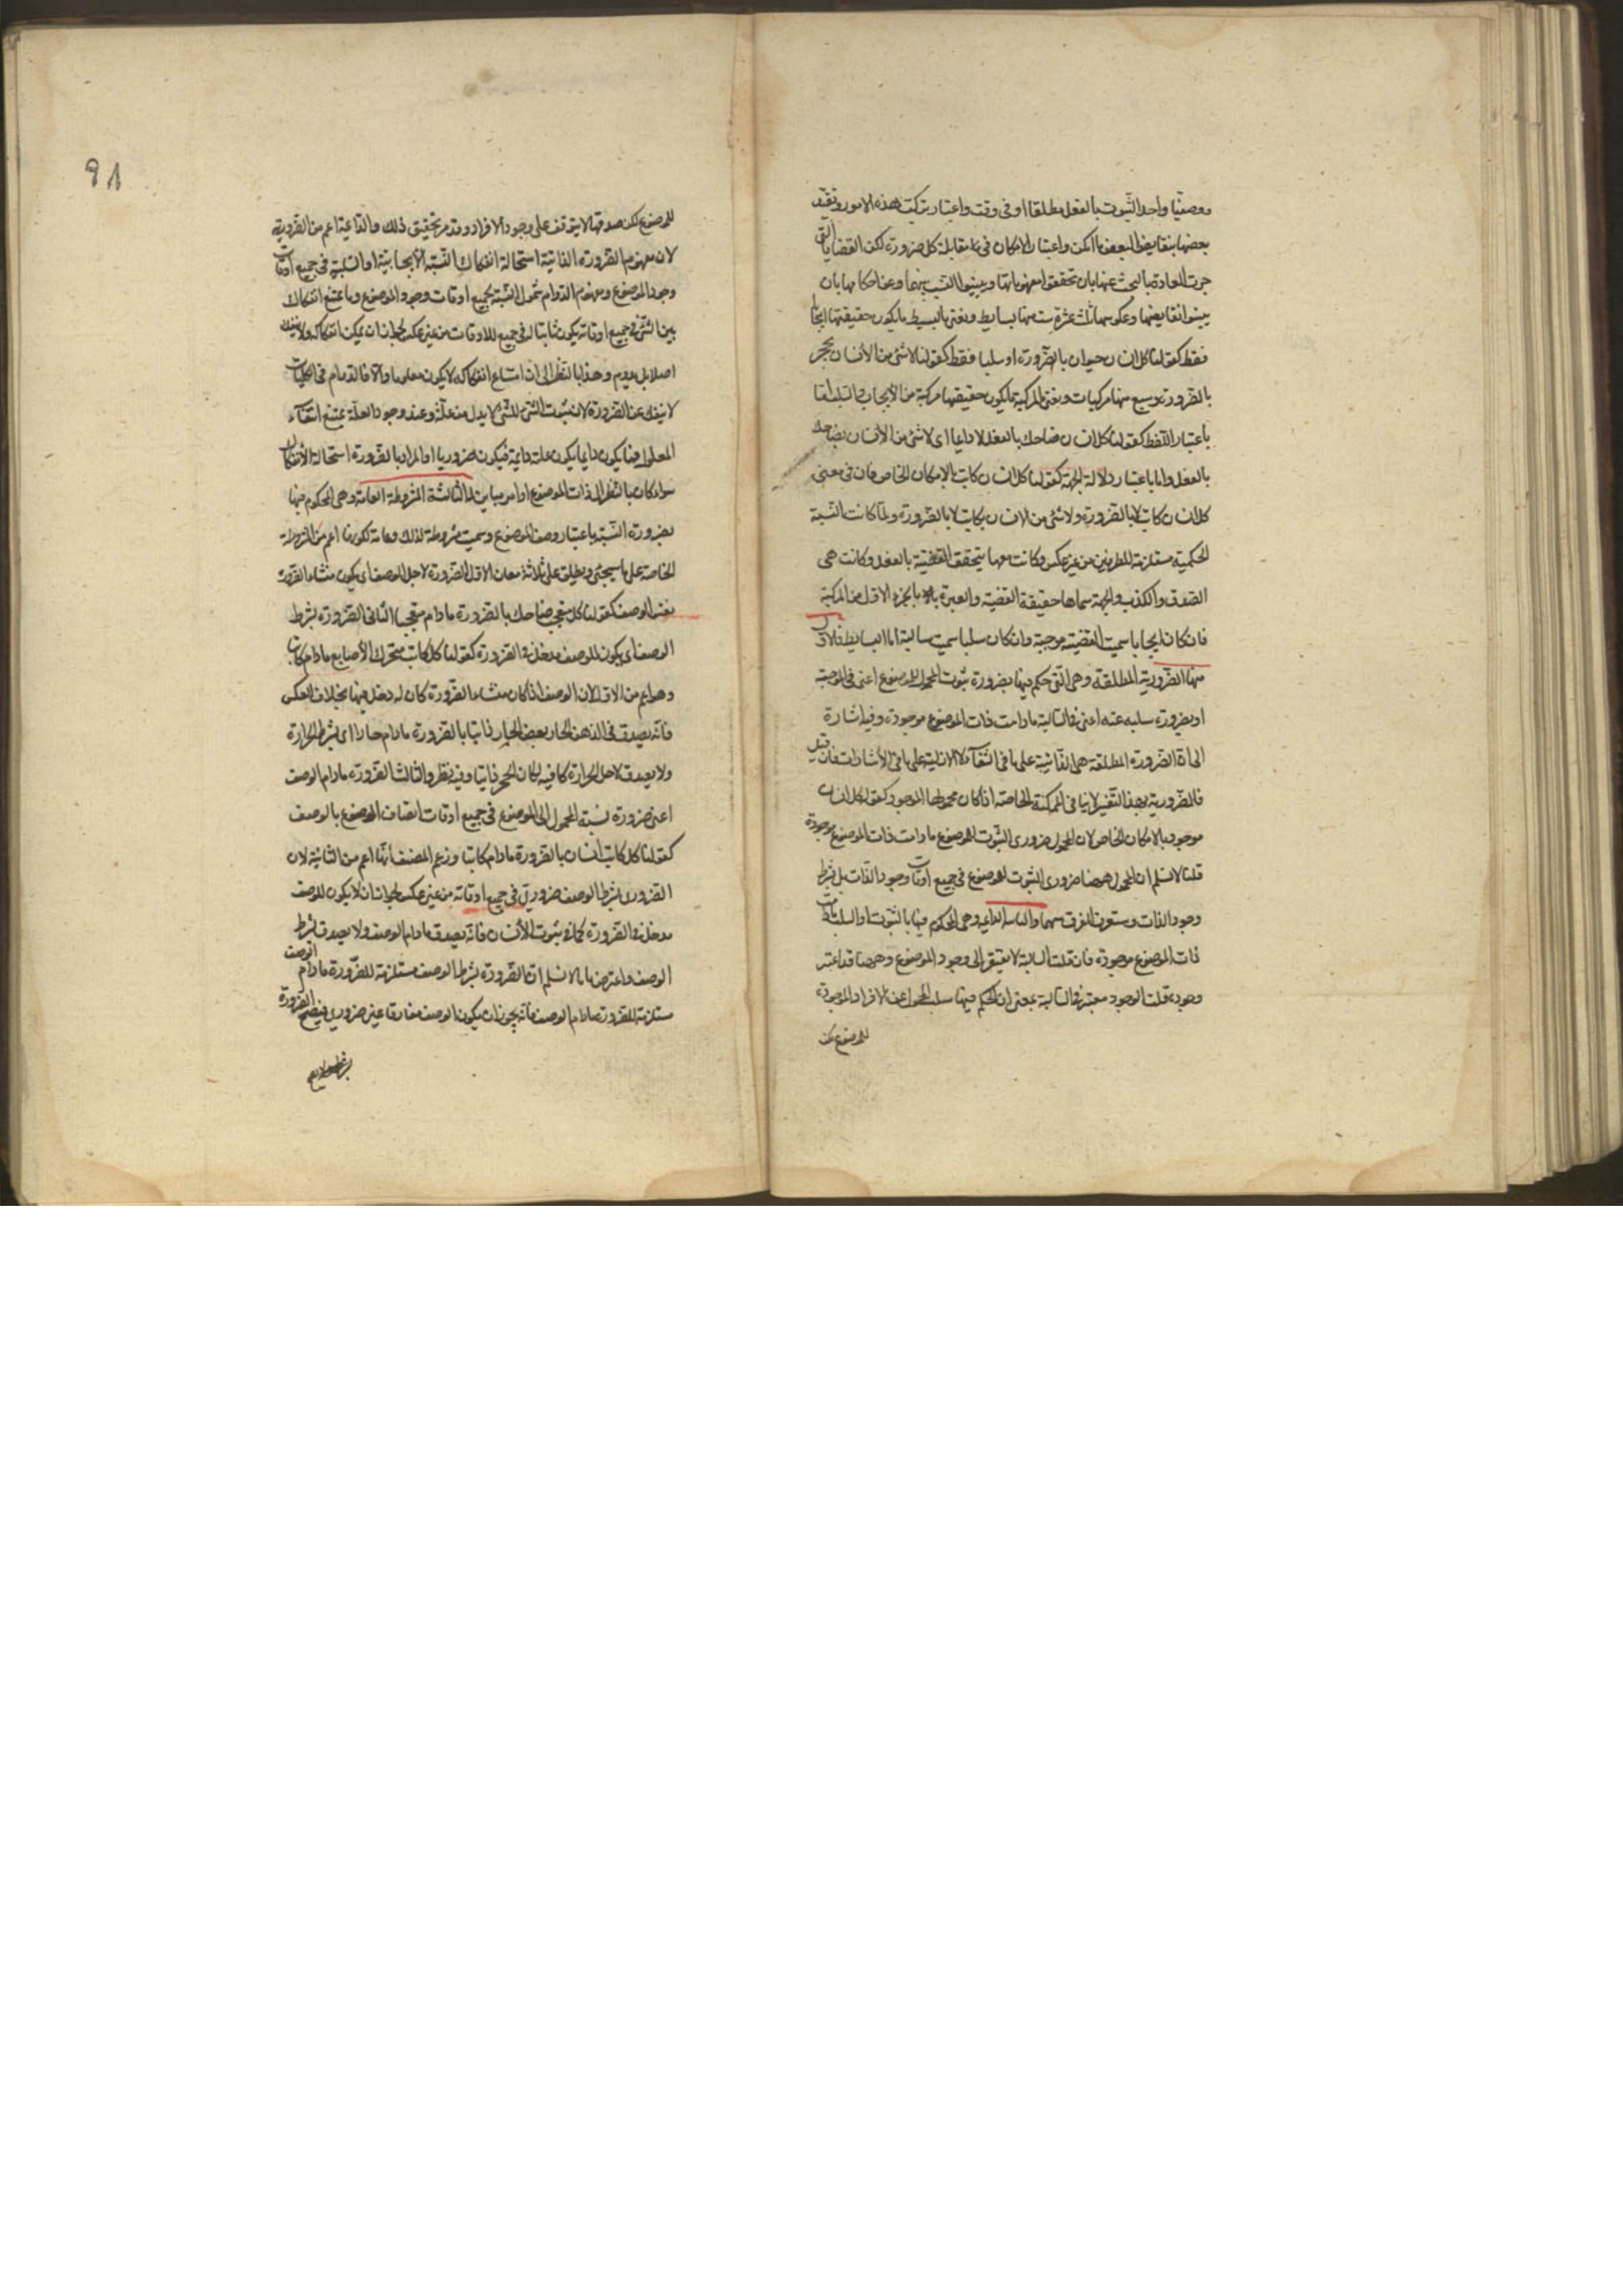 ووصفيا واحد الثبوت بالفعل مطلقا او فى وقت واعتبار تركب هذه الامور وتقيد
بعضها بنقايض البعض ما امكن واعتبار الامكان فى مقابلة كل ضرورة لكن القضايا التى
جرت العادة بالبحث عنها بان تحققوا مفهوماتها ويبينوا النسب بينهما وعن احكامها بان
يبينوا نقايضها وعكوسها ثلث عشرة ست منها بسايط ونعنى بالبسيط ما يكون حقيقتها ايجابا
فقط كقولنا كل انسان حيوان بالضرورة او سلبا فقط كقولنا لا شئ من الأنسان بحجر
بالضرورة وسبع منها مركبات ونعنى المركبة ما يكون حقيقتها مركبة من الأيجاب والسلب اما
باعتبار اللفظ كقولنا كل انسان ضاحك بالفعل لا دايما اى لا شئ من الأنسان بضاحك
بالفعل واما باعتبار دلالة الجهة كقولنا كل انسان كاتب بالإمكان الخاص فان فى معنى
كل انسان كاتب لا بالضرورة ولا شئ من الانسان بكاتب لا بالضرورة ولما كانت النسبة
الحكمية مستلزمة للطرفين من غير عكس وكانت معها يتحقق القضية بالفعل وكانت هى
الصدق والكذب والجهة سماها حقيقة القضية والعبرة بالجزء الاول من المركبة
فان كان ايجابا سميت القضية موجبة وان كان سلبا سميت سالبة اما البسايط فالاول
منها الضرورية المطلقة وهى التى حكم فيها بضرورة ثبوت المحمول للموضوع اعنى فى الموجبة
او بضرورة سلبه عنه اعنى فى السالبة ما دامت ذات الموضوع موجودة وفيه اشارة
الى ان الضرورة المطلقة هى الذاتية على ما فى الشفآء لا الازلية على ما فى الأشارات فان قيل
فالضرورية بهذا التفسير لا ينافى الممكنة الخاصة اذا كان محمولها الموجود كقولنا كل انسان
موجود بالامكان الخاص لان المحمول ضرورى الثبوت للموضوع ما دامت ذات الموضوع موجودة
قلنا لا نسلم ان المحمول ههنا ضرورى الثبوت للموضوع فى جميع اوقات وجود الذات بل بشرط
وجود الذات وستعرف الفرق بينهما والثانية الدايمة وهى المحكوم فيها بالثبوت او السلب ما دامت
ذات الموضوع موجودة فان قلت السالبة لا تفتقر الى وجود الموضوع وههنا قد اعتبر
وجوده قلت الوجود معتبر فى السالبة بمعنى ان الحكم فيها سلب المحمول عن الافراد الموجودة
للموضوع لكن
٩٨
للموضوع لكن صدقها لا يتوقف على وجود الافراد وقد مر تحقيق ذلك والدائمة اعم من الضرورية
لان مفهوم الضرورة الذاتية استحالة انفكاك النسبة الأيجابية او السلبية فى جميع اوقات
وجود الموضوع ومفهوم الدوام شمول النسبة بجميع اوقات وجود الموضوع وما يمتنع انفكاك
بين الشئ فى جميع اوقاته يكون ثابتا له فى جميع الاوقات من غير عكس لجواز ان يمكن انفكاكه ولا ينفك
اصلا بل يدوم وهذا بالنظر الى ان امتناع انفكاكه لا يكون معلوما والا فالدوام فى الكليات
لا ينفك عن الضرورة لان ثبوت الشئ للشئ لا بد له من علة وعند وجود العلة يمتنع انتفآء
المعلول فما يكون دايما يكون علته دايمة فيكون ضروريا او المراد بالضرورة استحالة الأنفكاك
سواء كان بالنظر الى ذات الموضوع او امر مباين له الثالثة المشروطة العامة وهى المحكوم فيها
بضرورة النسبة باعتبار وصف الموضوع وسميت مشروطة لذلك وعامة لكونها اعم من المشروطة
الخاصة على ما سيجئ ويطلق على ثلاثة معان الاول الضرورة لاجل الوصف اى يكون منشاء الضرورة
نفس الوصف كقولنا كل متعجب ضاحك بالضرورة ما دام متعجبا الثانى الضرورة بشرط
الوصف اى يكون للوصف مدخل فى الضرورة كقولنا كل كاتب متحرك الأصابع ما دام كاتبا
وهو اعم من الاول لان الوصف اذا كان منشاء الضرورة كان له دخل فيها بخلاف العكس
فانه يصدق فى الدهن الحار بعض الحار ذائب بالضرورة ما دام حارا اى بشرط الحرارة
ولا يصدق لاجل الحرارة كافيه لكان الحجر ذائبا وفيه نظر والثالث الضرورة ما دام الوصف
اعنى ضرورة نسبة المحمول الى الموضوع فى جميع اوقات اتصاف الموضوع بالوصف
كقولنا كل كاتب انسان بالضرورة ما دام كاتبا وزعم المصنف انها اعم من الثانية لان
الضرورى بشرط الوصف ضرورى فى جميع اوقاته من غير عكس لجواز ان لا يكون للوصف
مدخل فى الضرورة كما فى ثبوت الأنسان فانه يصدق ما دام الوصف ولا يصدق بشرط
الوصف واعترض بانا لا نسلم ان الضرورة بشرط الوصف مستلزمة للضرورة ما دام الوصف
مستلزمة للضرورة ما دام الوصف فانه يجوز ان يكون الوصف مفارقا غير ضرورى فيصح الضرورة